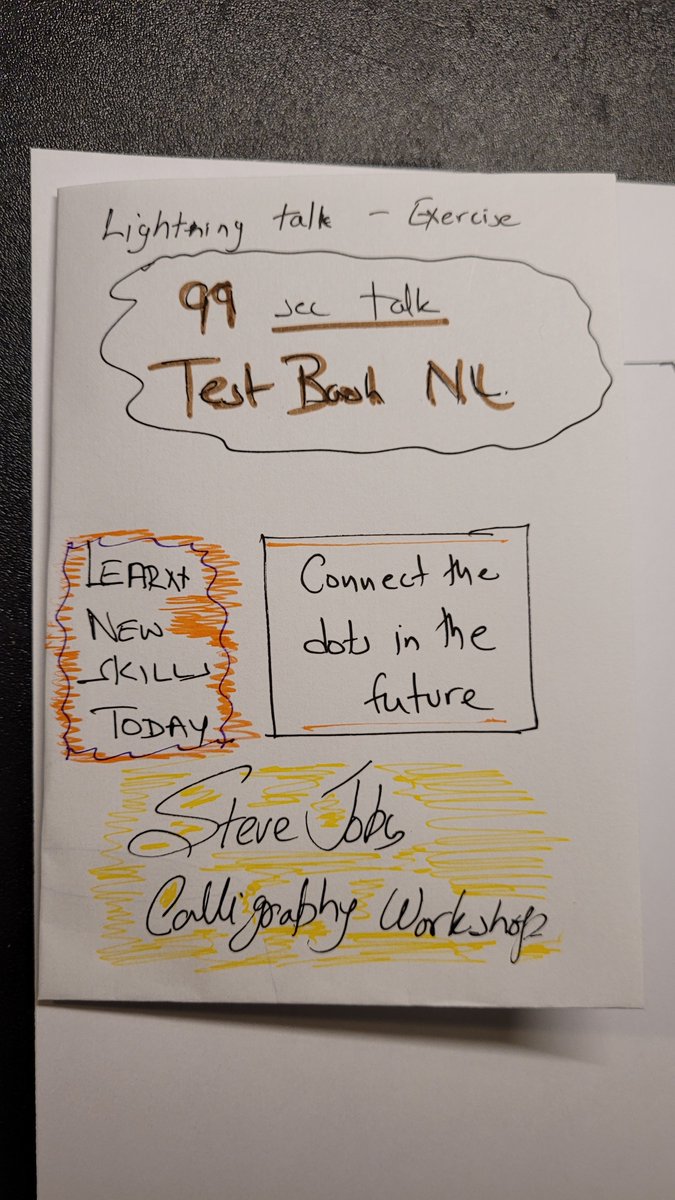 Lightning talk - Exercise
99 sec talk
Test Bash NL.
LEARN
NEW
SKILLS
TODAY
Connect the
dots in the
future
Steve Jobs
Calligraphy Workshop